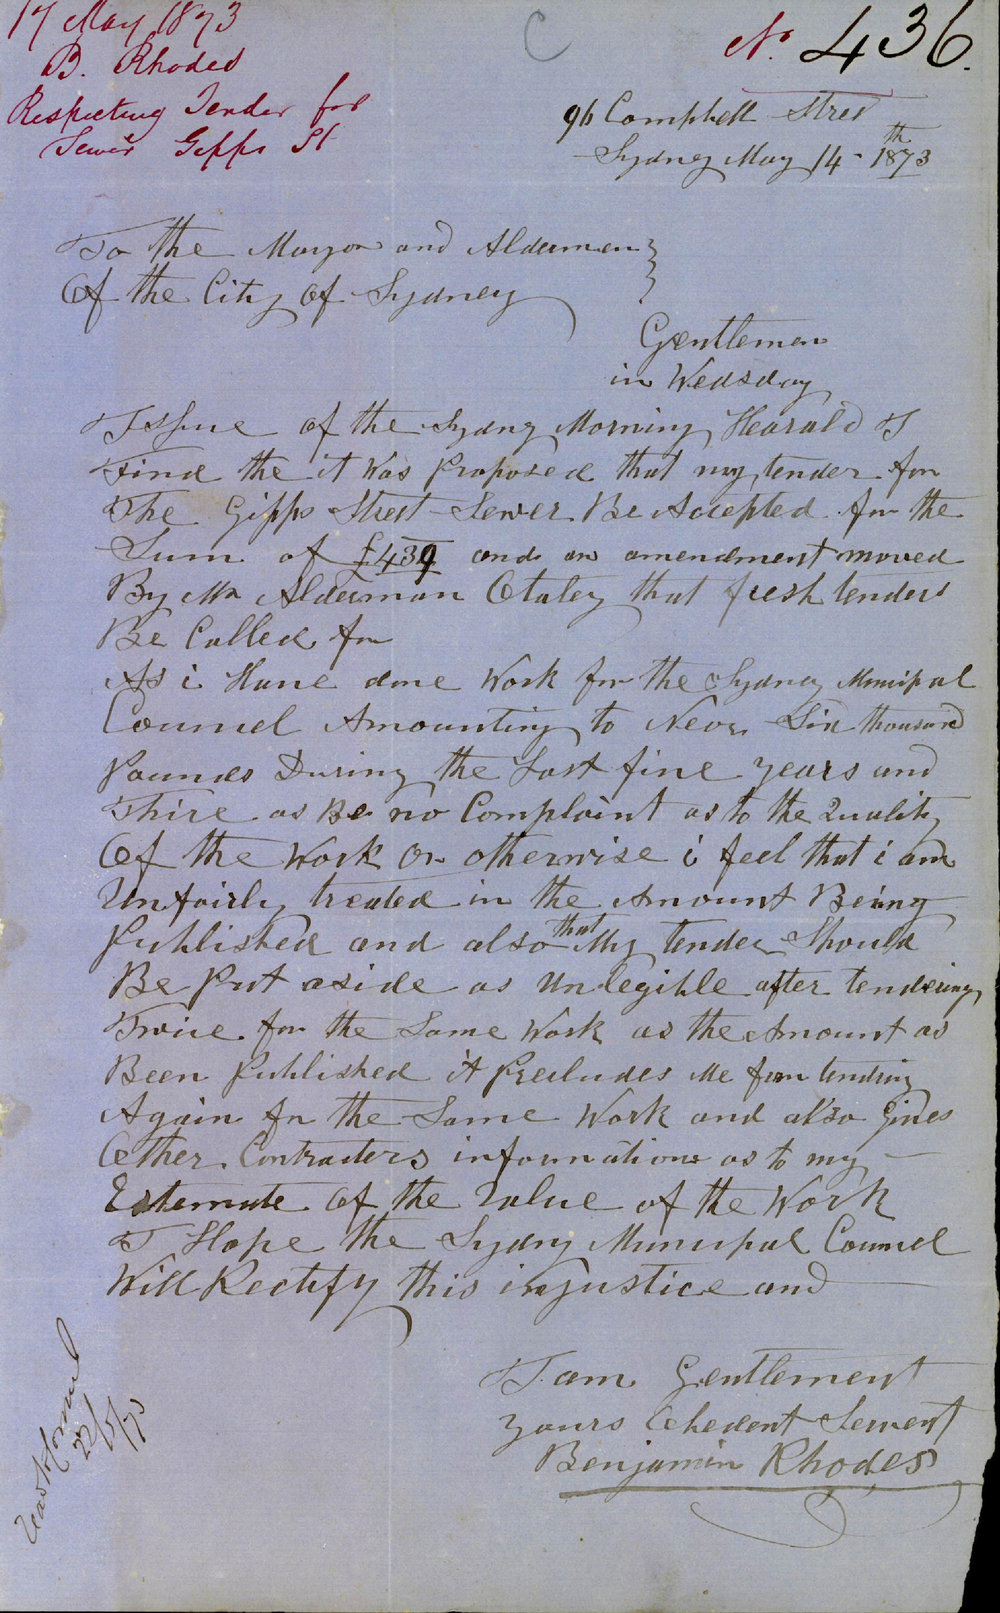 17 May 1873
B. Rhodes
Respecting Tender for
Sewer Gipps St
C
No. 436.
96 Campbell Street
Sydney May 14th 1873
To the Mayor and Aldermen
Of the City of Sydney
Gentlemen
in Wedsday
Issue of the Sydny Morning Hearald I
Find the it Was Proposed that my tender for
The Gipps Street Sewer Be Accepted for the
Sum of £439 and an amendment moved
By Mr Alderman Oatley that fresh tenders
Be Called for
As i Have done Work for the Sydney Municipal
Councel Amounting to Near Six thousand
Pounds During the Last five years and
Thire as Be no Complaint as to the Quality
Of the Work Or otherwise i feel that i am
Unfairly treated in the Amount Being
Published and also that My tender Should
Be Put aside as Unlegible after tendering
Twice for the Same Work as the Amount as
Been Published it Precludes Me from tendring
Again for the Same Work and also Gives
Other Contracters information as to my
Estemate Of the Value of the Work
I Hope the Sydny Municipal Councel
Will Rectify this injustice and
I am Gentlement
Yours Obedent Servent
Benjamin Rhodes
22/5/73